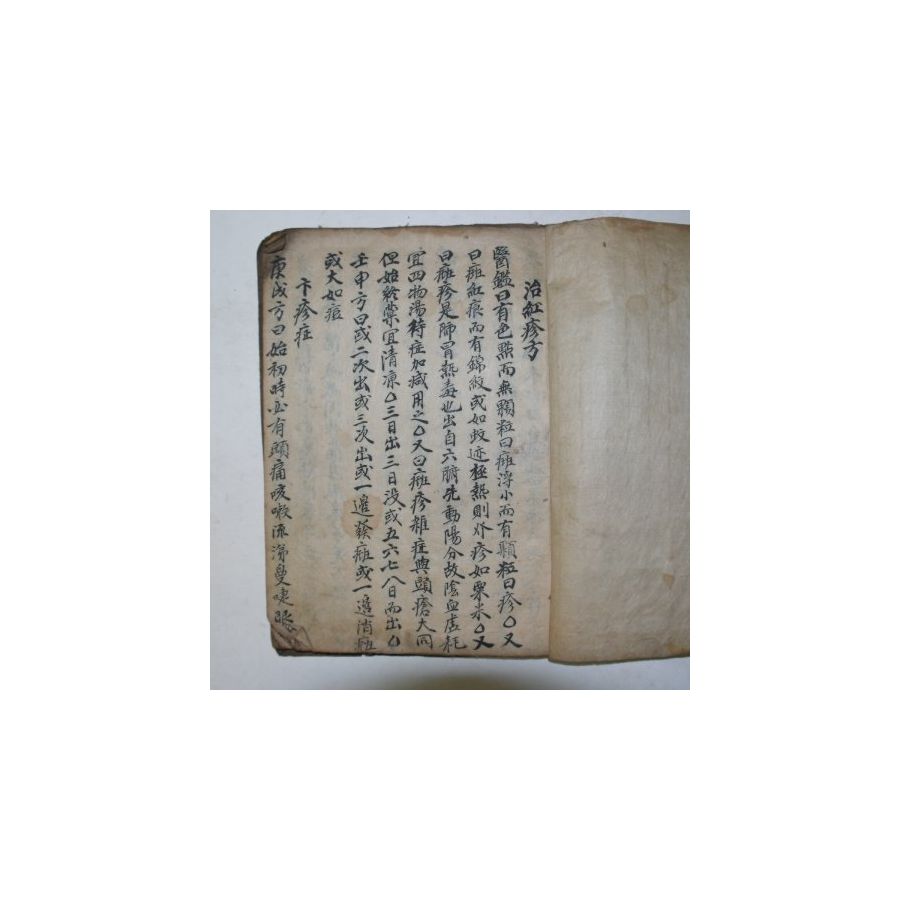 治紅疹方
醫鑑曰有色點而無顆粒曰㿀浮小而有顆粒曰疹○又
曰㿀紅痕而有錦紋或如蚊迹極熱則外疹如粟米○又
曰㿀疹是肺胃熱毒也出自六腑先動陽分故陰血虛耗
宜四物湯待症加减用之○又曰㿀疹雜症與頭瘡大同
但始終藥宜清凉○三日出三日没或五六七八日而出○
壬申方曰或二次出或三次出或一邊發㿀或一邊消
或大如痘
卞疹症
庚戌方曰始初時必有頭痛咳嗽流涕